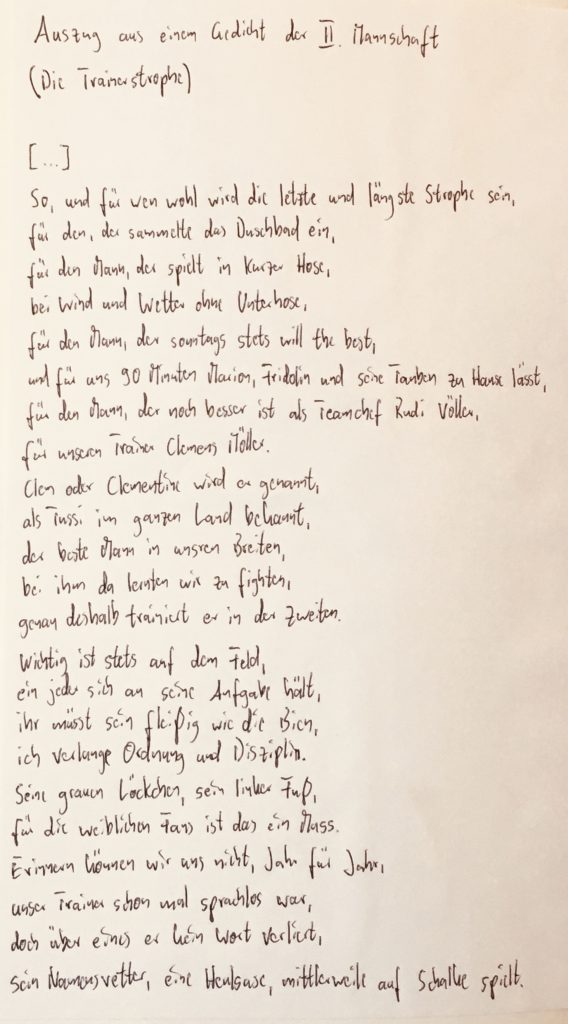 Auszug aus einem Gedicht der II. Mannschaft
(Die Trainerstrophe)
[...]
So, und für wen wohl wird die letzte und längste Strophe sein,
für den, der sammelte das Duschbad ein,
für den Mann, der spielt in kurzer Hose,
bei Wind und Wetter ohne Unterhose,
für den Mann, der sonntags stets will the best,
und für uns 90 Minuten Marion, Fridolin und seine Tauben zu Hause lässt,
für den Mann, der noch besser ist als Teamchef Rudi Völler,
für unseren Trainer Clemens Möller.
Clem oder Clementine wird er genannt,
als Tussi im ganzen Land bekannt,
der beste Mann in unsren Breiten,
bei ihm da lernten wir zu fighten,
genau deshalb trainiert er in der Zweiten.
Wichtig ist stets auf dem Feld,
ein jeder sich an seine Aufgabe hält,
ihr müsst sein fleißig wie die Bien,
ich verlange Ordnung und Disziplin.
Seine grauen Löckchen, sein linker Fuß,
für die weiblichen Fans ist das ein Muss.
Erinnern können wir uns nicht, Jahr für Jahr,
unser Trainer schon mal sprachlos war,
doch über eines er kein Wort verliert,
sein Namensvetter, eine Heulsuse, mittlerweile auf Schalke spielt.